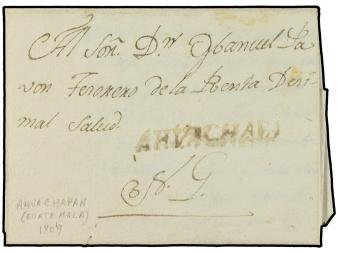 Al Señ. Dn Manuel Pa
von Tesorero de la Renta Desi-
mal Salud.
AHVACHAPAN
N. G.
AHUACHAPAN
(GUATEMALA)
1809